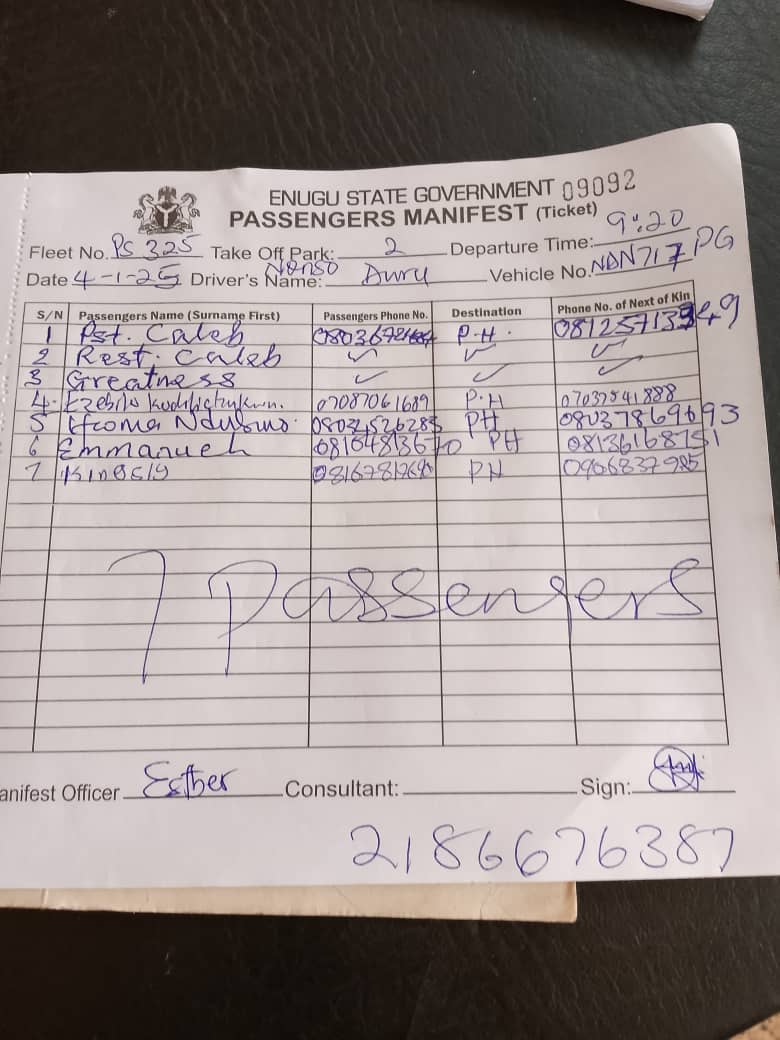 ENUGU STATE GOVERNMENT 09092
PASSENGERS MANIFEST (Ticket)
Fleet No. PS 325 Take Off Park: 2 Departure Time: 9:20
Date 4-1-25 Driver's Name: Nonso Auru Vehicle No. NDN717PG
S/N Passengers Name (Surname First) Passengers Phone No. Destination Phone No. of Next of Kin
1 Pst. Caleb P.H.
2 Rest. Caleb ✓ ✓ ✓
3 Greatness ✓ ✓ ✓
4. 07087061689 P.H 07037541888
5 08034526283 PH 08037869693
6 Emmanueh PH
7 Kingsly PH
7 Passengers
anifest Officer Esther Consultant: Sign:
2186676387